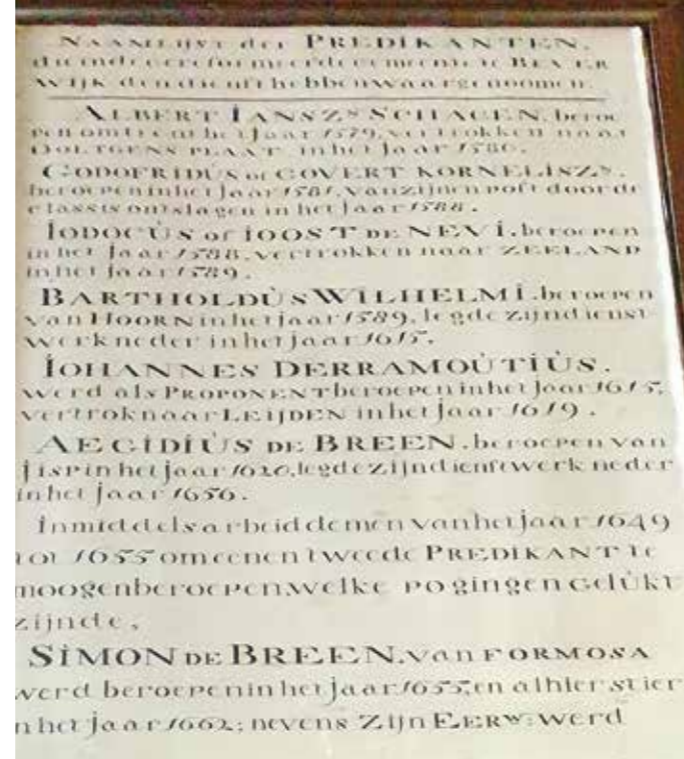 NAAMLIJST der PREDIKANTEN.
die in de gereformeerde gemeente BEVER
WIJK den dienst hebben waargenoomen.
ALBERT IANSZN SCHAGEN. beroe
pen omtrent het Jaar 1579, vertrokken naar
OOLTGENS PLAAT in het Jaar 1580.
GODOFRIDUS of GOVERT KORNELISZN.
beroepen in het Jaar 1581, van zijnen post door de
classis ontslagen in het Jaar 1588.
IODOCÙS of IOOST DE NEVI. beroepen
in het Jaar 1588, vertrokken naar ZEELAND
in het Jaar 1589.
BARTHOLDÙS WILHELMI. beroepen
van HOORN in het jaar 1589, legde zijn dienst
werk neder in het jaar 1615.
IOHANNES DERRAMOÙTIÙS.
werd als PROPONENT beroepen in het Jaar 1615,
vertrok naar LEIJDEN in het Jaar 1619.
AEGIDIÙS DE BREEN. beroepen van
Jisp in het jaar 1620, legde zijn dienst werk neder
in het Jaar 1656.
Inmiddels arbeiddemen van het jaar 1649
tot 1655 om eenen tweede PREDIKANT te
moogen beroepen, welke pogingen gelùkt
zijnde,
SIMON DE BREEN. van FORMOSA
werd beroepen in het jaar 1655, en alhier stier
n het Jaar 1662; nevens Zijn EERW: werd